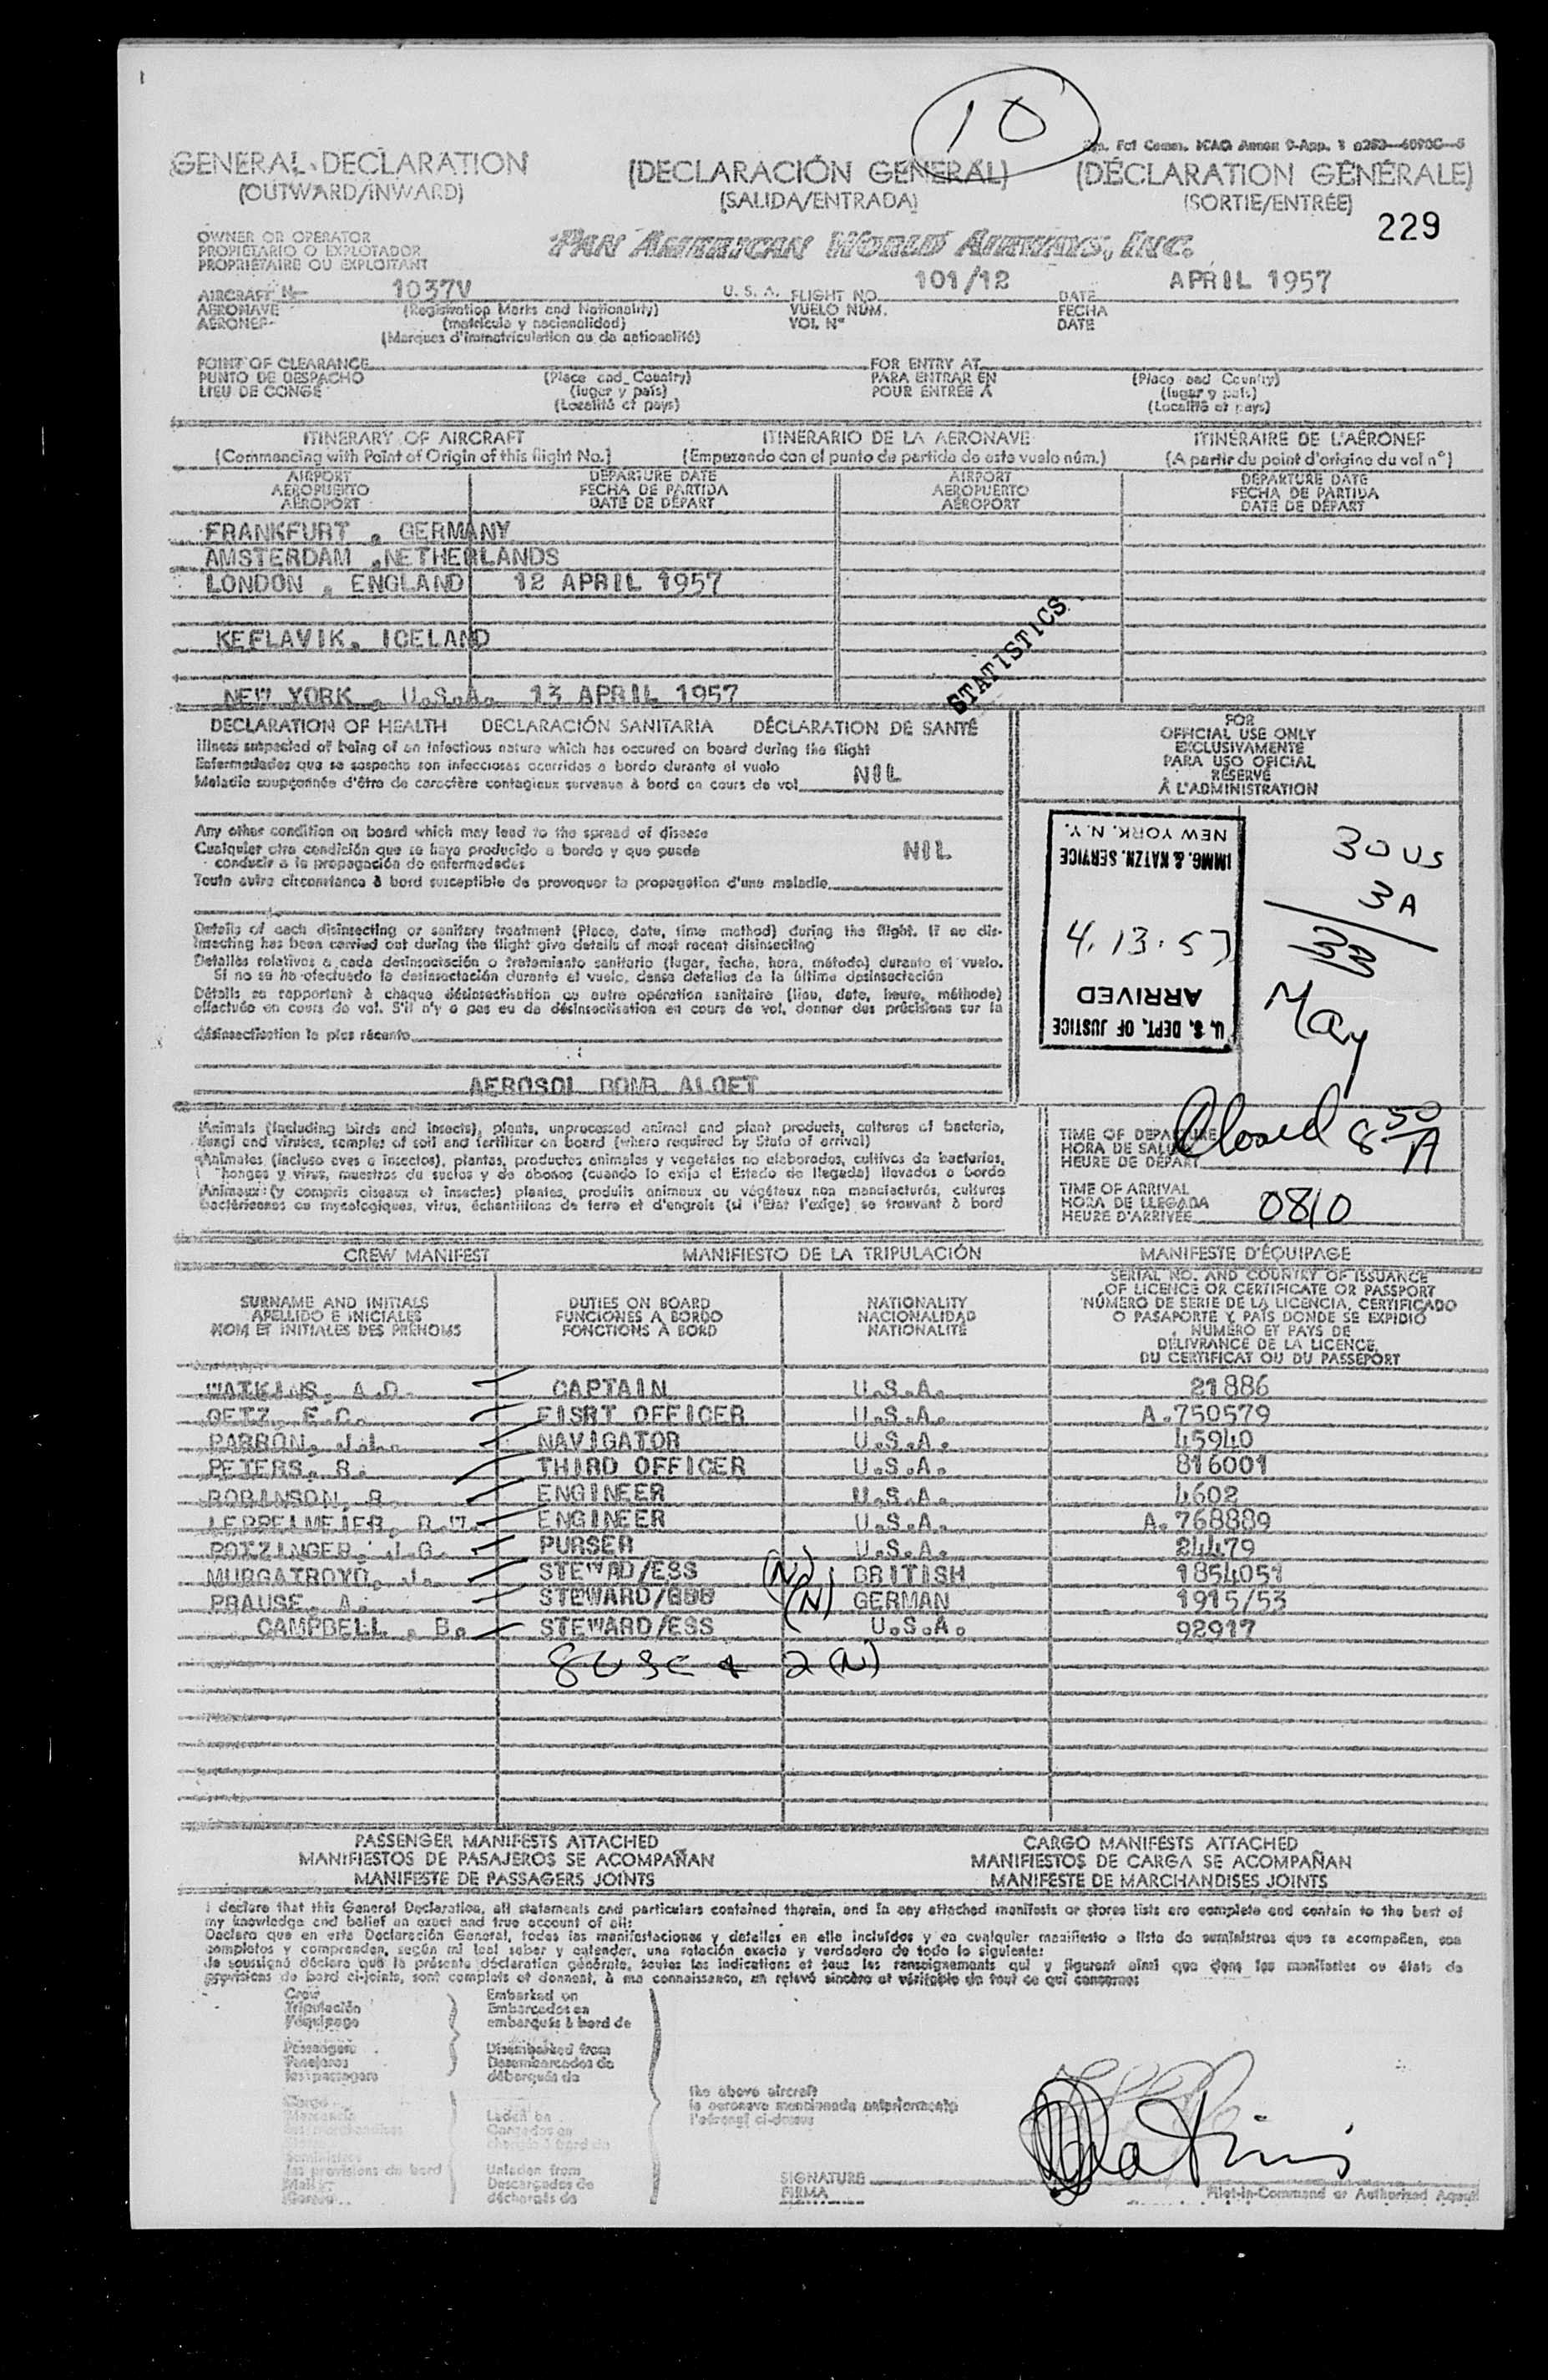 10
GENERAL DECLARATION
(OUTWARD/INWARD)
(DECLARACIÓN GENERAL)
(SALIDA/ENTRADA)
(DÉCLARATION GÉNÉRALE)
(SORTIE/ENTRÉE)
229
OWNER OR OPERATOR
PROPIETARIO O EXPLOTADOR
PROPRIÉTAIRE OU EXPLOITANT
PAN AMERICAN WORLD AIRWAYS, INC.
AIRCRAFT N 1037V U. S. A. FLIGHT NO. 101/12 DATE APRIL 1957
AERONAVE (Registration Marks and Nationality) VUELO NÚM. FECHA
AÉRONEF (matrícula y nacionalidad) VOL N° DATE
(Marques d'immatriculation ou de nationalité)
POINT OF CLEARANCE FOR ENTRY AT
PUNTO DE DESPACHO (Place and Country) PARA ENTRAR EN (Place and Country)
LIEU DE CONGÉ (lugar y país) POUR ENTRÉE À (lugar y país)
(Localité et pays) (Localité et pays)
ITINERARY OF AIRCRAFT ITINERARIO DE LA AERONAVE ITINÉRAIRE DE L'AÉRONEF
(Commencing with Point of Origin of this flight No.) (Empezando con el punto de partida de este vuelo núm.) (A partir du point d'origine du vol n°)
AIRPORT DEPARTURE DATE AIRPORT DEPARTURE DATE
AEROPUERTO FECHA DE PARTIDA AEROPUERTO FECHA DE PARTIDA
AÉROPORT DATE DE DÉPART AÉROPORT DATE DE DÉPART
FRANKFURT , GERMANY
AMSTERDAM ,NETHERLANDS
LONDON , ENGLAND 12 APRIL 1957
KEFLAVIK, ICELAND
NEW YORK , U.S.A. 13 APRIL 1957
STATISTICS
DECLARATION OF HEALTH DECLARACIÓN SANITARIA DÉCLARATION DE SANTÉ
Illness suspected of being of an infectious nature which has occured on board during the flight
Enfermedades que se sospecha son infecciosas ocurridas a bordo durante el vuelo
Maladie soupçonnée d'être de caractère contagieux survenue à bord en cours de vol NIL
Any other condition on board which may lead to the spread of disease
Cualquier otra condición que se haya producido a bordo y que puede NIL
conducir a la propagación de enfermedades
Toute autre circonstance à bord susceptible de provoquer la propagation d'une maladie
Details of each disinsecting or sanitary treatment (Place, date, time method) during the flight. If no dis-
insecting has been carried out during the flight give details of most recent disinsecting
Detalles relativos a cada desinsectación o tratamiento sanitario (lugar, fecha, hora, método) durante el vuelo.
Si no se ha efectuado la desinsectación durante el vuelo, dense detalles de la última desinsectación
Détails se rapportant à chaque désinsectisation ou autre opération sanitaire (lieu, date, heure, méthode)
effectuée en cours de vol. S'il n'y a pas eu de désinsectisation en cours de vol, donner des précisions sur la
désinsectisation la plus récente
AEROSOL BOMB ALOET
FOR
OFFICIAL USE ONLY
EXCLUSIVAMENTE
PARA USO OFICIAL
RÉSERVÉ
À L'ADMINISTRATION
U. S. DEPT. OF JUSTICE
ARRIVED
4.13.57
IMMG. & NATZN. SERVICE
NEW YORK, N.Y.
30 US
3 A
33
May
Animals (including birds and insects), plants, unprocessed animal and plant products, cultures of bacteria,
fungi and viruses, samples of soil and fertilizer on board (where required by State of arrival)
Animales (incluso aves e insectos), plantas, productos animales y vegetales no elaborados, cultivos de bacterias,
hongos y virus, muestras de suelos y de abonos (cuando lo exija el Estado de llegada) llevados a bordo
Animaux (y compris oiseaux et insectes) plantes, produits animaux ou végétaux non manufacturés, cultures
bactériennes ou mycologiques, virus, échantillons de terre et d'engrais (si l'État l'exige) se trouvant à bord
TIME OF DEPARTURE
HORA DE SALIDA
HEURE DE DÉPART
Closed 8 50 A
TIME OF ARRIVAL
HORA DE LLEGADA
HEURE D'ARRIVÉE
0810
CREW MANIFEST MANIFIESTO DE LA TRIPULACIÓN MANIFESTE D'ÉQUIPAGE
SURNAME AND INITIALS
APELLIDO E INICIALES
NOM ET INITIALES DES PRÉNOMS
DUTIES ON BOARD
FUNCIONES A BORDO
FONCTIONS À BORD
NATIONALITY
NACIONALIDAD
NATIONALITÉ
SERIAL NO. AND COUNTRY OF ISSUANCE
OF LICENCE OR CERTIFICATE OR PASSPORT
NÚMERO DE SERIE DE LA LICENCIA, CERTIFICADO
O PASAPORTE Y PAÍS DONDE SE EXPIDIÓ
NUMÉRO ET PAYS DE
DÉLIVRANCE DE LA LICENCE,
DU CERTIFICAT OU DU PASSEPORT
WATKINS, A.D. CAPTAIN U.S.A. 21886
OETZ, E.C. FISRT OFFICER U.S.A. A.750579
PARRON, J.L. NAVIGATOR U.S.A. 45940
PETERS, R. THIRD OFFICER U.S.A. 816001
ROBINSON, R. ENGINEER U.S.A. 4602
LEPPELMEIER, R.W. ENGINEER U.S.A. A.768889
POTZINGER, J.G. PURSER U.S.A. 24479
MURGATROYD, J. STEWAD/ESS (N) BRITISH 1854051
PRAUSE, A. STEWARD/ESS (N) GERMAN 1915/53
CAMPBELL , B. STEWARD/ESS U.S.A. 92917
8 USC & 2 (N)
PASSENGER MANIFESTS ATTACHED CARGO MANIFESTS ATTACHED
MANIFIESTOS DE PASAJEROS SE ACOMPAÑAN MANIFIESTOS DE CARGA SE ACOMPAÑAN
MANIFESTE DE PASSAGERS JOINTS MANIFESTE DE MARCHANDISES JOINTS
I declare that this General Declaration, all statements and particulars contained therein, and in any attached manifests or stores lists are complete and contain to the best of
my knowledge and belief an exact and true account of all:
Declaro que en esta Declaración General, todas las manifestaciones y detalles en ella incluídos y en cualquier manifiesto o lista de suministros que se acompañen, son
completos y comprenden, según mi leal saber y entender, una relación exacta y verdadera de todo lo siguiente:
Je soussigné déclare que la présente déclaration générale, toutes les indications et tous les renseignements qui y figurent ainsi que dans les manifestes ou états de
provisions de bord ci-joints, sont complets et donnent, à ma connaissance, un relevé sincère et véritable de tout ce qui concerne:
Crew Embarked on
Tripulación Embarcados en
l'équipage embarqués à bord de
Passengers Disembarked from
Pasajeros Desembarcados de
les passagers débarqués de
Cargo Laden on
Mercancía Cargados en
les provisions de bord Unladen from
Descargados de
déchargés de
the above aircraft
la aeronave mencionada anteriormente
l'aéronef ci-dessus
SIGNATURE
FIRMA
Watkins
Pilot-in-Command or Authorized Agent